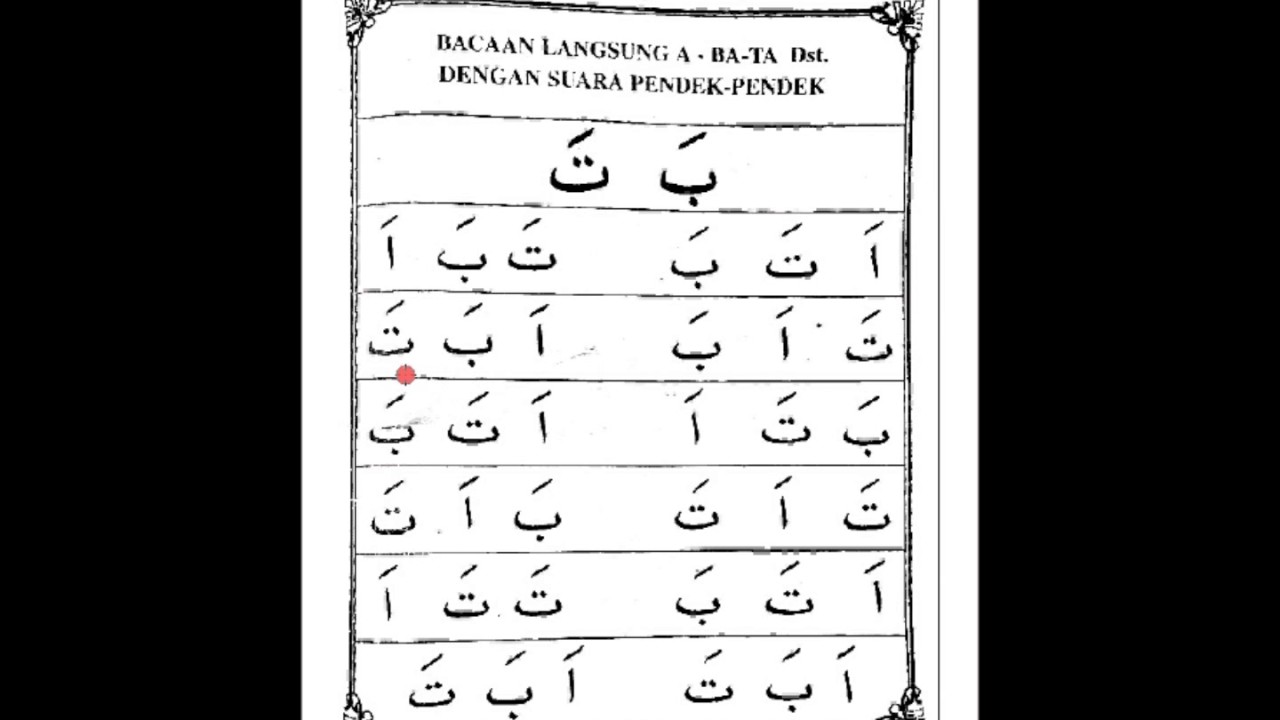 BACAAN LANGSUNG A - BA-TA Dst.
DENGAN SUARA PENDEK-PENDEK
بَ تَ
اَ تَ بَ تَ بَ اَ
تَ اَ بَ اَ بَ تَ
بَ تَ اَ اَ تَ بَ
تَ اَ تَ بَ اَ تَ
اَ تَ بَ تَ تَ اَ
اَ بَ تَ اَ بَ تَ